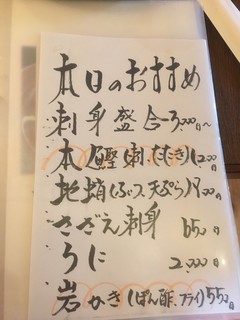 本日のおすすめ
刺身盛合3,000円〜
本鰹(刺、たたき)1,200
地蛸(ぶつ、天ぷら)900円
さざえ刺身 650円
うに 2,000円
岩かき(ぽん酢、フライ)550円